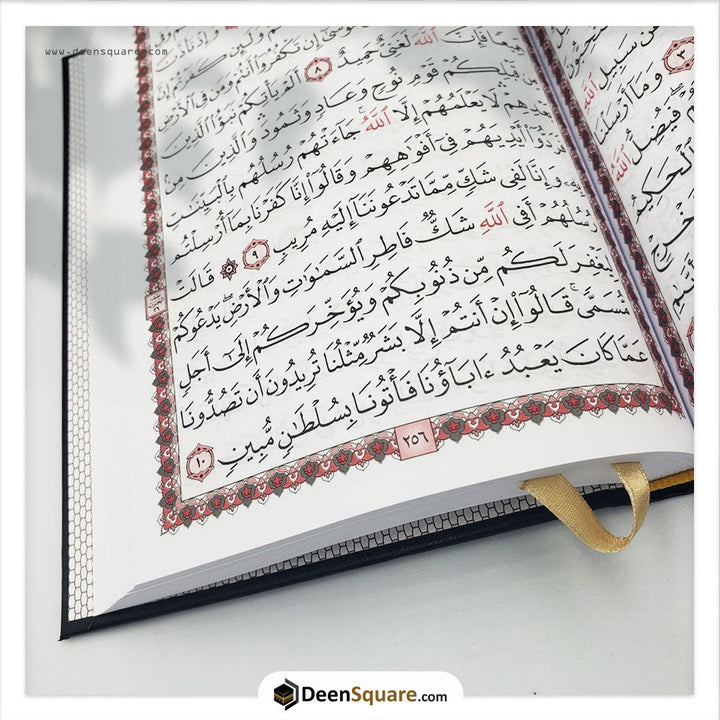 www.deensquare.com
وَلَئِن كَفَرْتُمْ إِنَّ
مُوسَىٰٓ إِن تَكْفُرُوٓا۟ أَنتُمْ وَمَن فِى ٱلْأَرْضِ
فَإِنَّ ٱللَّهَ لَغَنِىٌّ حَمِيدٌ ٨ أَلَمْ يَأْتِكُمْ نَبَؤُا۟ ٱلَّذِينَ
مِن قَبْلِكُمْ قَوْمِ نُوحٍ وَعَادٍ وَثَمُودَ وَٱلَّذِينَ مِنۢ
بَعْدِهِمْ لَا يَعْلَمُهُمْ إِلَّا ٱللَّهُ جَآءَتْهُمْ رُسُلُهُم بِٱلْبَيِّنَٰتِ
فَرَدُّوٓا۟ أَيْدِيَهُمْ فِىٓ أَفْوَٰهِهِمْ وَقَالُوٓا۟ إِنَّا كَفَرْنَا بِمَآ أُرْسِلْتُم
بِهِۦ وَإِنَّا لَفِى شَكٍّ مِّمَّا تَدْعُونَنَآ إِلَيْهِ مُرِيبٍ ٩ ۞ قَالَتْ
رُسُلُهُمْ أَفِى ٱللَّهِ شَكٌّ فَاطِرِ ٱلسَّمَٰوَٰتِ وَٱلْأَرْضِ ۖ يَدْعُوكُمْ
لِيَغْفِرَ لَكُم مِّن ذُنُوبِكُمْ وَيُؤَخِّرَكُمْ إِلَىٰٓ أَجَلٍ
مُّسَمًّى ۚ قَالُوٓا۟ إِنْ أَنتُمْ إِلَّا بَشَرٌ مِّثْلُنَا تُرِيدُونَ أَن تَصُدُّونَا
عَمَّا كَانَ يَعْبُدُ ءَابَآؤُنَا فَأْتُونَا بِسُلْطَٰنٍ مُّبِينٍ ١٠
٢٥٦
٣
عَن سَبِيلِ ٱللَّهِ
وَمَآ أَرْسَلْنَا
فَيُضِلُّ ٱللَّهُ
ٱلْحَكِيمُ
DeenSquare.com